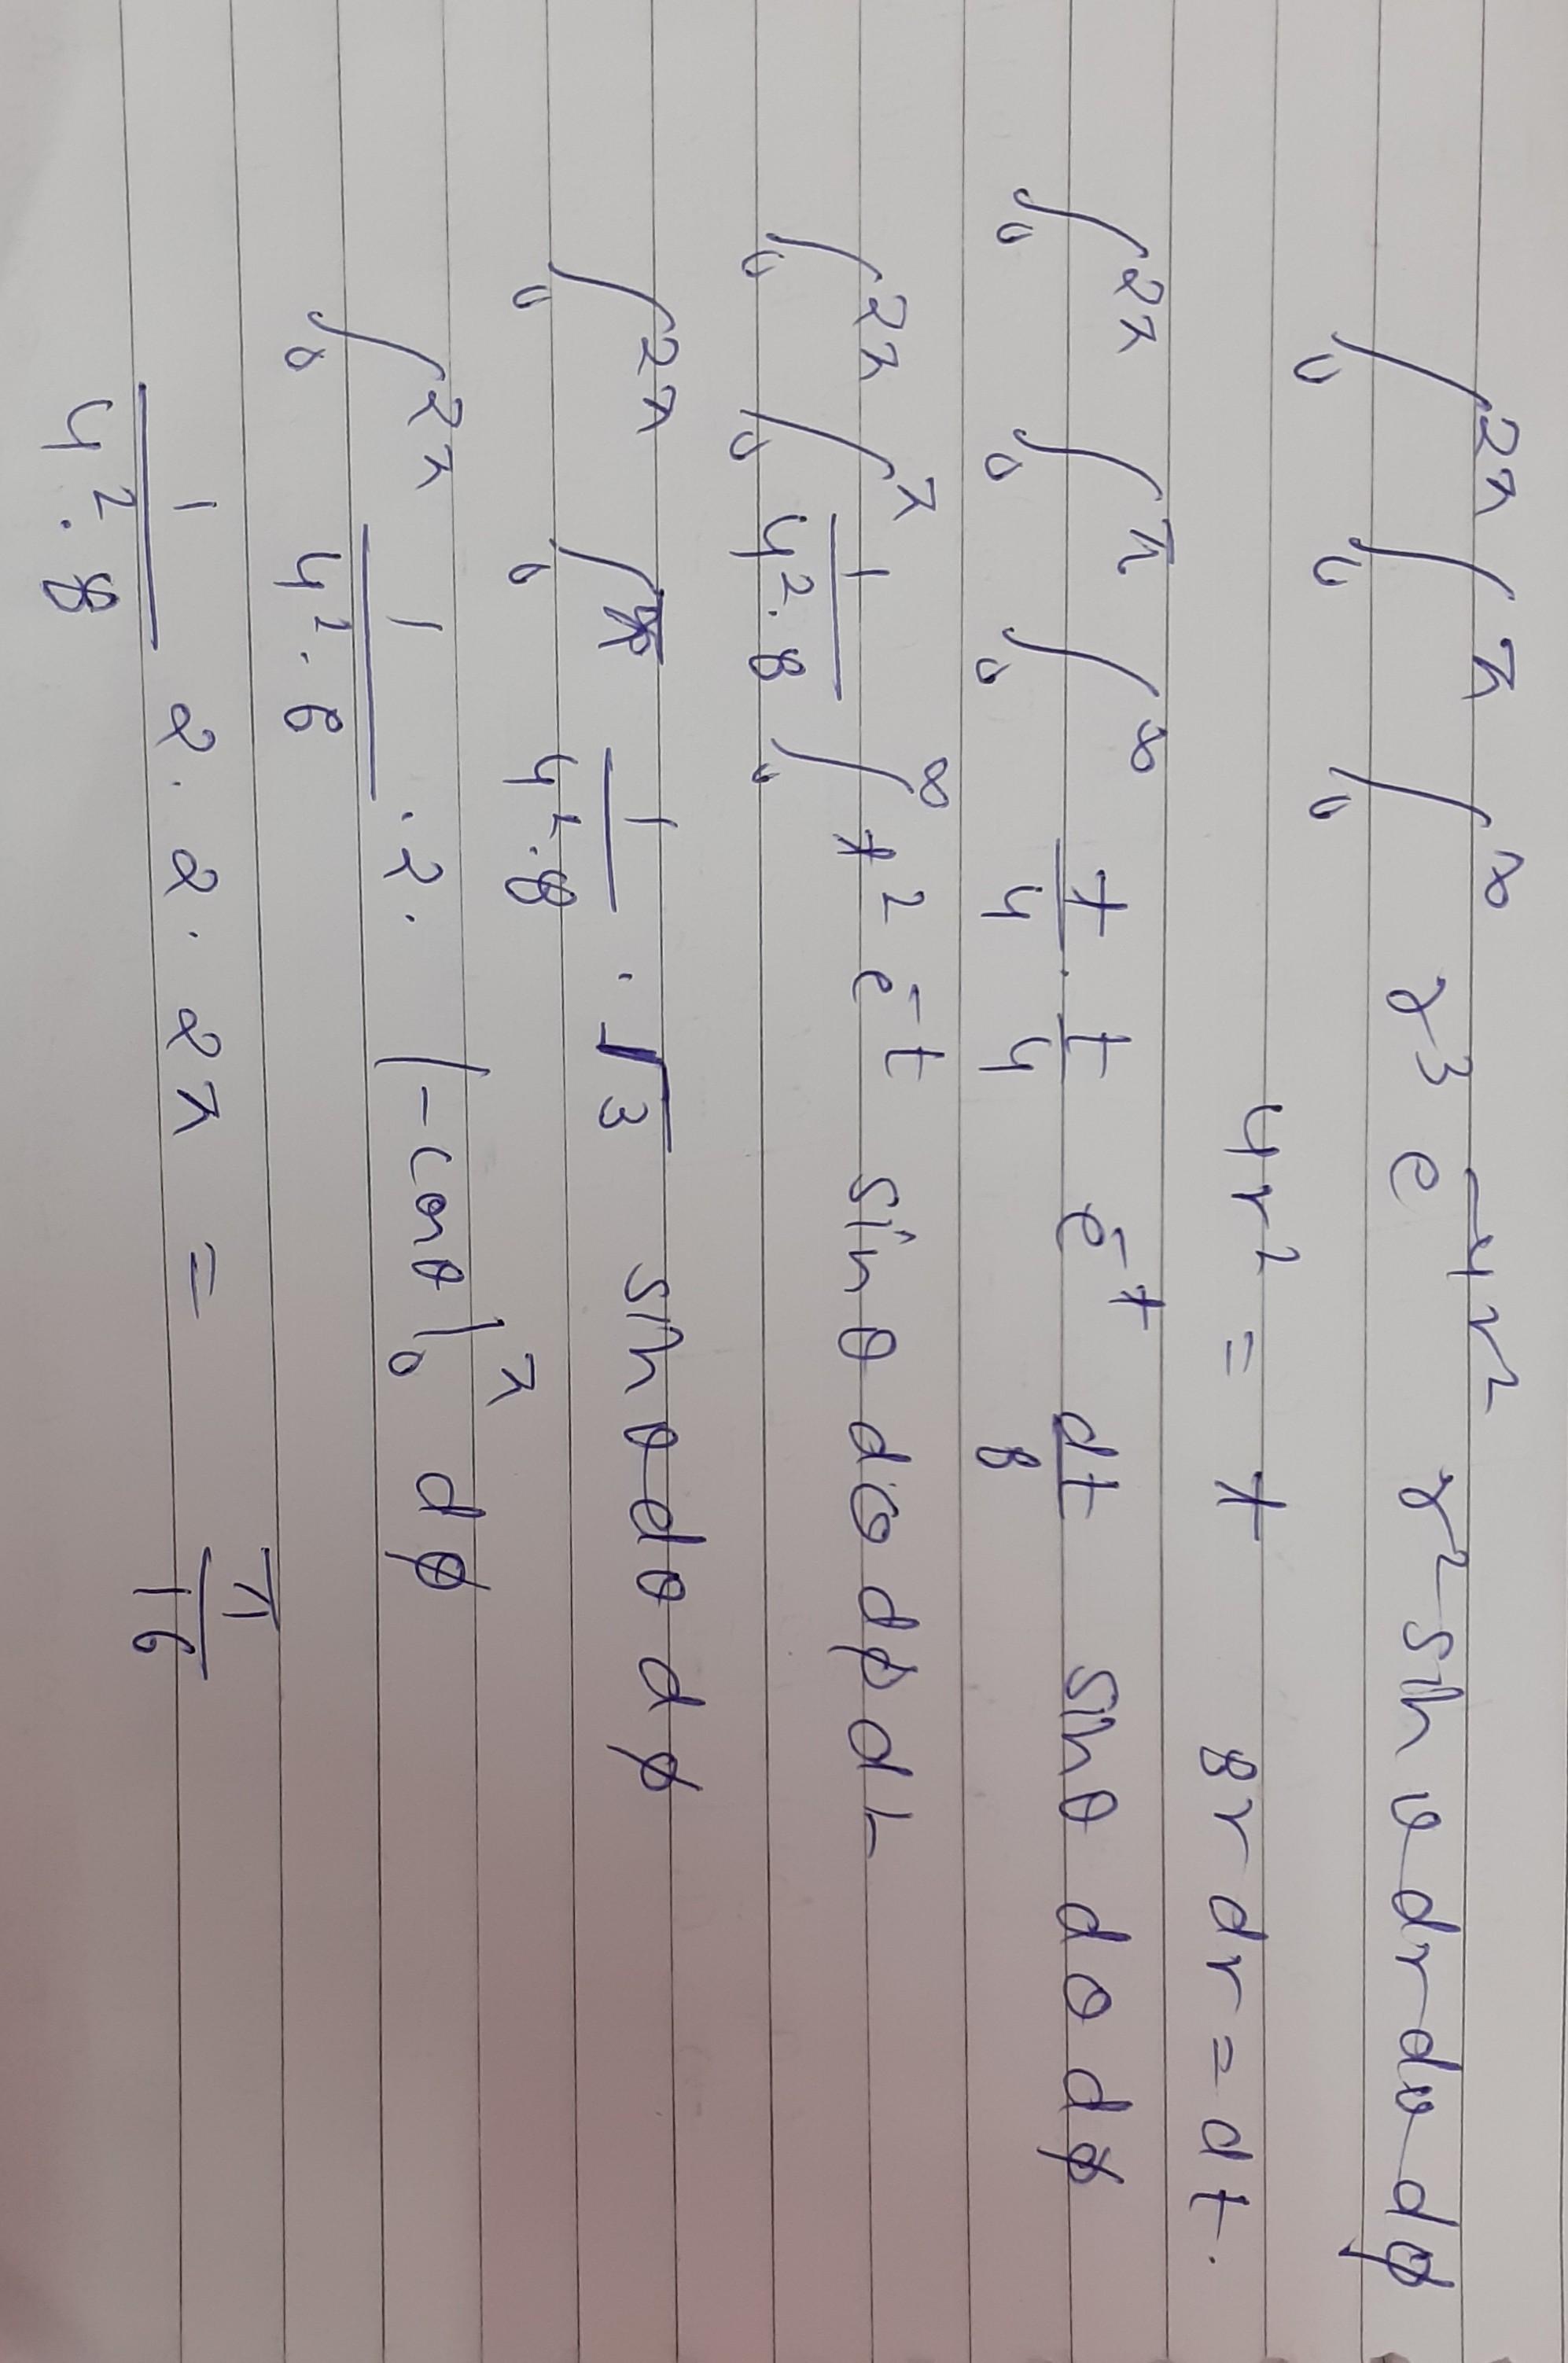 ∫₀^2π ∫₀^π ∫₀^∞ r³ e^-4r² r² sin θ dr dθ dφ
4r² = t 8r dr = dt.
∫₀^2π ∫₀^π ∫₀^∞ t/4 · t/4 e^-t dt/8 sin θ dθ dφ
∫₀^2π ∫₀^π 1/(4²·8) ∫₀^∞ t² e^-t sin θ dθ dφ dt
∫₀^2π ∫₀^π 1/(4²·8) · √3 sin θ dθ dφ
∫₀^2π 1/(4²·8) · 2 · (-cos θ)₀^π dφ
1/(4²·8) 2 · 2 · 2π = π/16